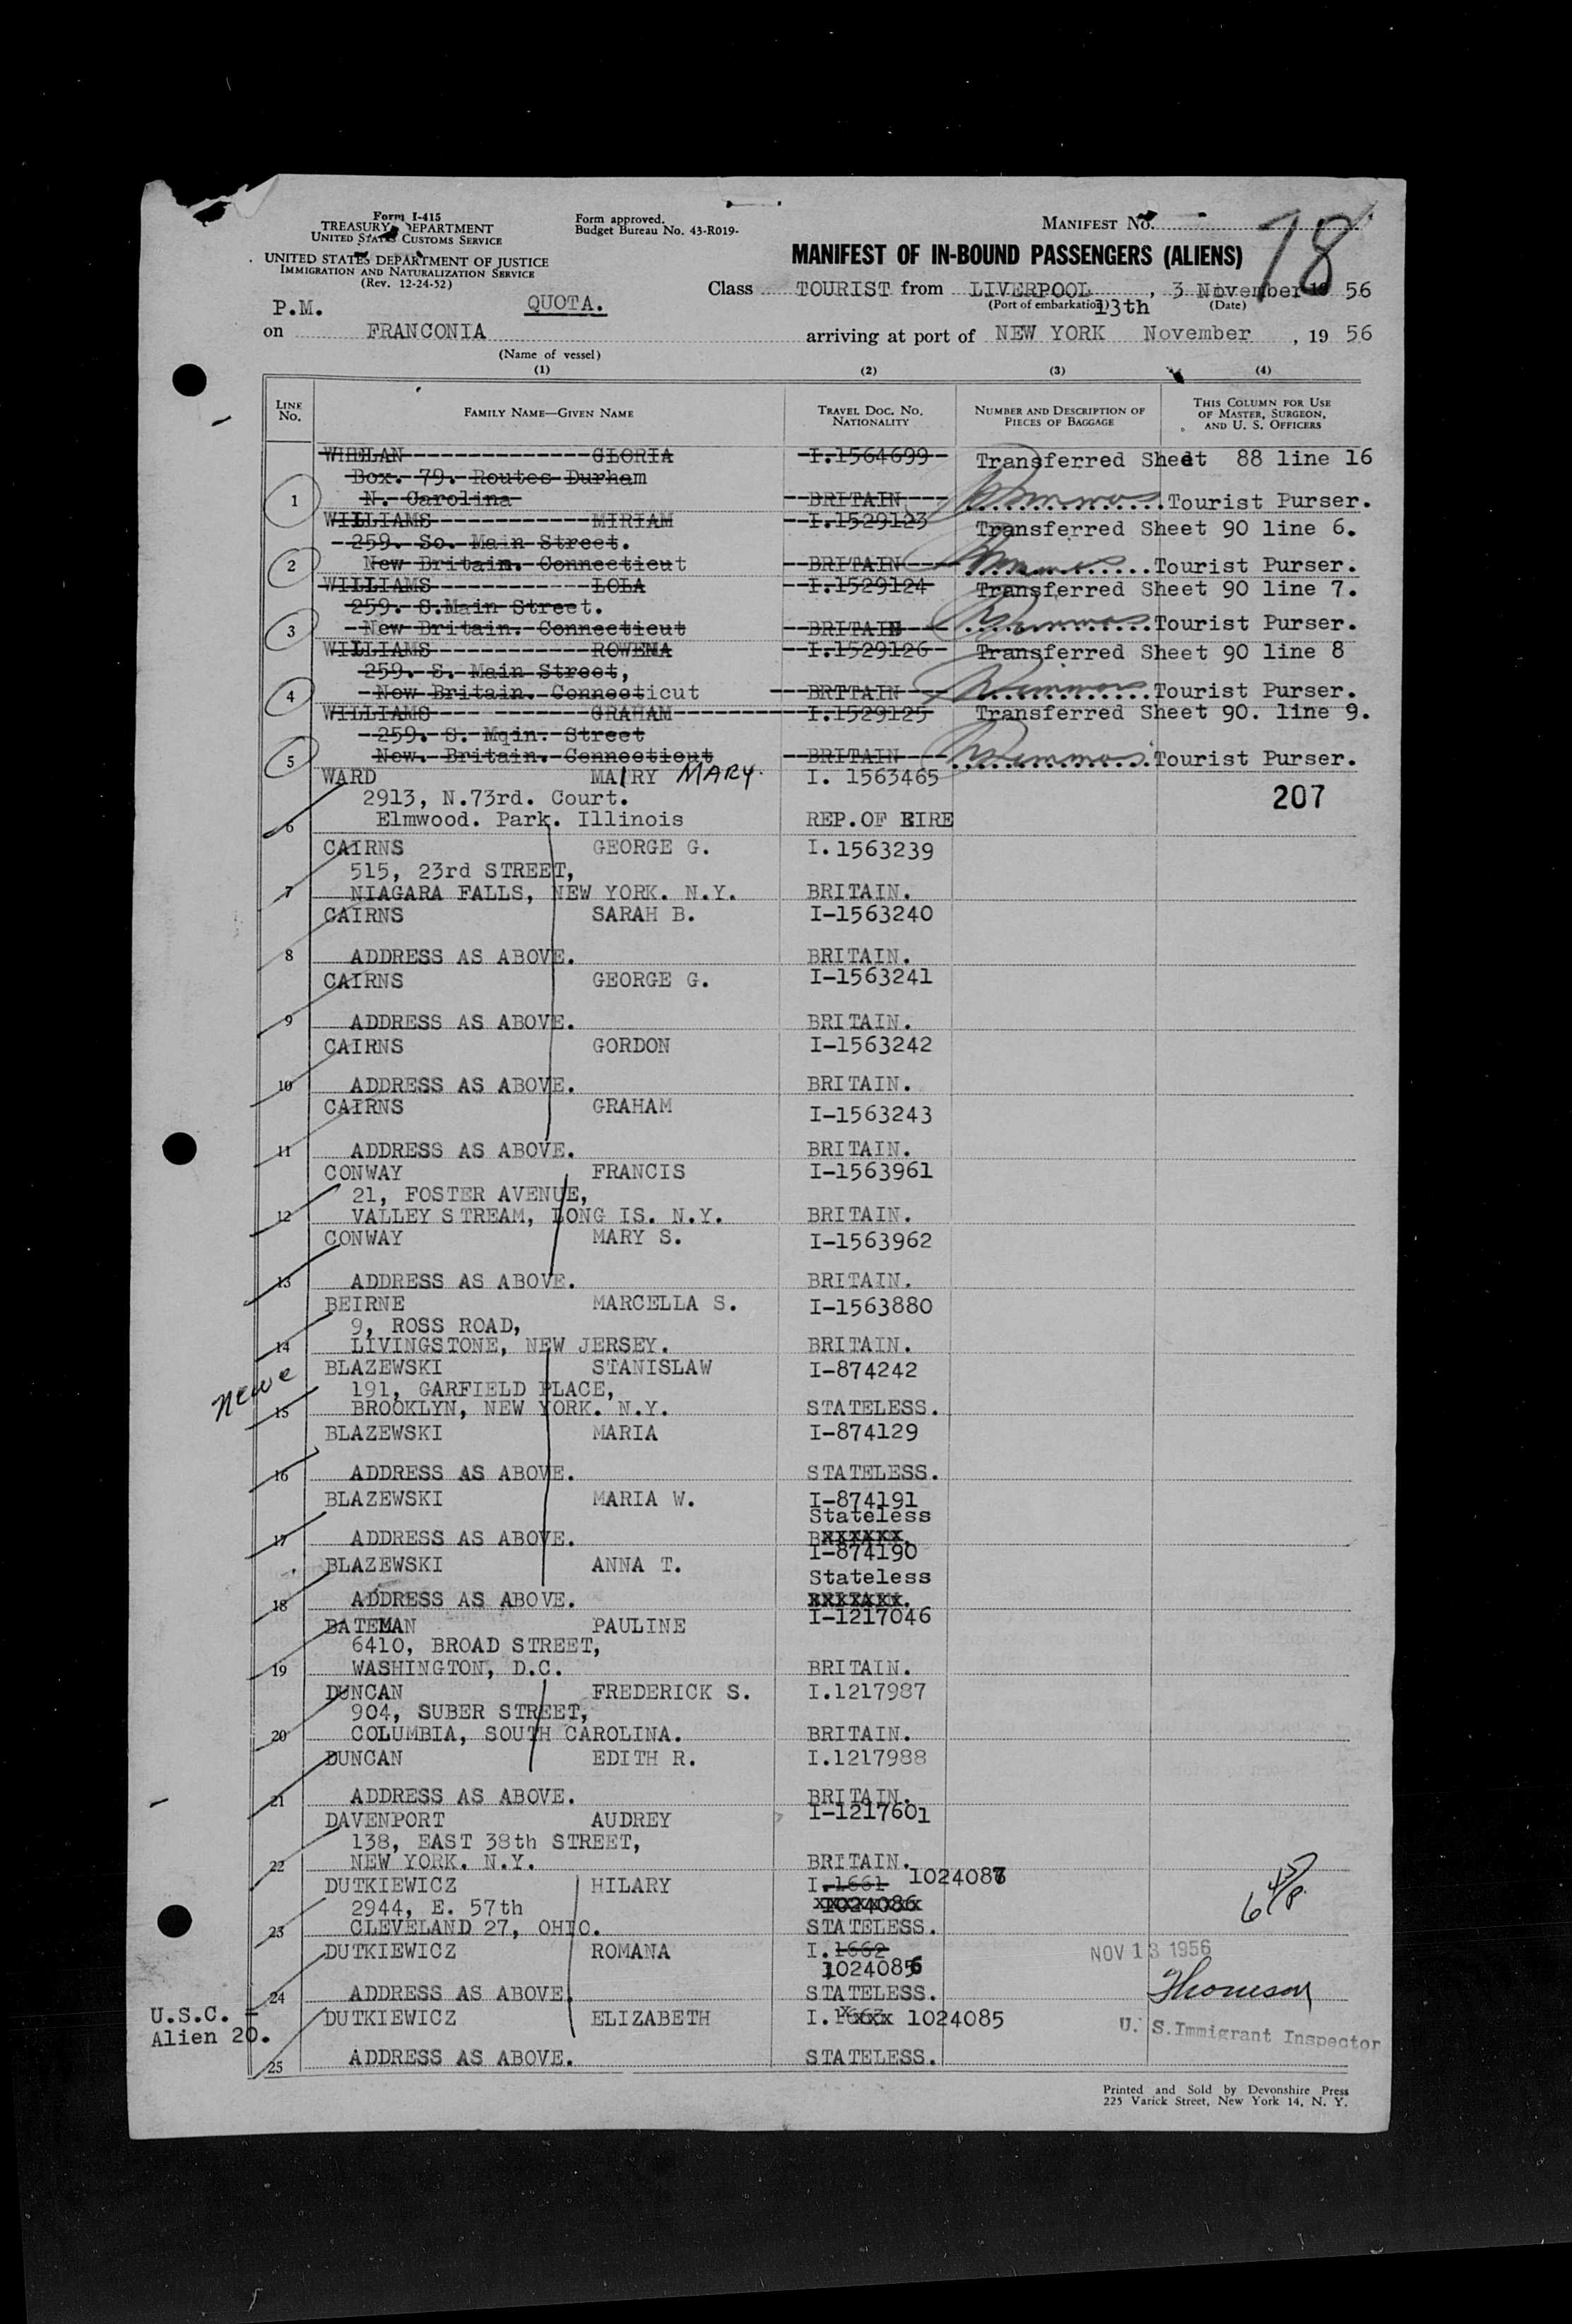 Form I-415
TREASURY DEPARTMENT
UNITED STATES CUSTOMS SERVICE
UNITED STATES DEPARTMENT OF JUSTICE
IMMIGRATION AND NATURALIZATION SERVICE
(Rev. 12-24-52)
Form approved.
Budget Bureau No. 43-R019-
MANIFEST No. 78
MANIFEST OF IN-BOUND PASSENGERS (ALIENS)
Class TOURIST from LIVERPOOL, 3 November 19 56
(Port of embarkation) (Date)
P.M. QUOTA.
13th
on FRANCONIA arriving at port of NEW YORK November, 19 56
(Name of vessel)
(1) (2) (3) (4)
LINE No. FAMILY NAME—GIVEN NAME TRAVEL DOC. No. NATIONALITY NUMBER AND DESCRIPTION OF PIECES OF BAGGAGE THIS COLUMN FOR USE OF MASTER, SURGEON, AND U. S. OFFICERS
GLORIA I.1564699 Transferred Sheet 88 line 16
Box. 79. Routes Durham
1 N. Carolina BRITAIN Tourist Purser.
WILLIAMS MIRIAM I.1529123 Transferred Sheet 90 line 6.
259. So. Main Street.
2 New Britain. Connecticut BRITAIN Tourist Purser.
WILLIAMS LOLA I.1529124 Transferred Sheet 90 line 7.
259. S.Main Street.
3 New Britain. Connecticut BRITAIN Tourist Purser.
WILLIAMS ROWENA I.1529126 Transferred Sheet 90 line 8
259. S. Main Street,
4 New Britain. Connecticut BRITAIN Tourist Purser.
WILLIAMS GRAHAM I.1529125 Transferred Sheet 90. line 9.
259. S. Mqin. Street
5 New. Britain. Connecticut BRITAIN Tourist Purser.
WARD MAIRY MARY. I. 1563465
2913, N.73rd. Court. 207
6 Elmwood. Park. Illinois REP.OF EIRE
CAIRNS GEORGE G. I.1563239
515, 23rd STREET,
7 NIAGARA FALLS, NEW YORK. N.Y. BRITAIN.
CAIRNS SARAH B. I-1563240
8 ADDRESS AS ABOVE. BRITAIN.
CAIRNS GEORGE G. I-1563241
9 ADDRESS AS ABOVE. BRITAIN.
CAIRNS GORDON I-1563242
10 ADDRESS AS ABOVE. BRITAIN.
CAIRNS GRAHAM I-1563243
11 ADDRESS AS ABOVE. BRITAIN.
CONWAY FRANCIS I-1563961
21, FOSTER AVENUE,
12 VALLEY STREAM, LONG IS. N.Y. BRITAIN.
CONWAY MARY S. I-1563962
13 ADDRESS AS ABOVE. BRITAIN.
BEIRNE MARCELLA S. I-1563880
9, ROSS ROAD,
14 LIVINGSTONE, NEW JERSEY. BRITAIN.
BLAZEWSKI STANISLAW I-874242
191, GARFIELD PLACE,
15 BROOKLYN, NEW YORK. N.Y. STATELESS.
BLAZEWSKI MARIA I-874129
16 ADDRESS AS ABOVE. STATELESS.
BLAZEWSKI MARIA W. I-874191
Stateless
17 ADDRESS AS ABOVE. BRITAIN.
BLAZEWSKI ANNA T. I-874190
Stateless
18 ADDRESS AS ABOVE. BRITAIN.
BATEMAN PAULINE I-1217046
6410, BROAD STREET,
19 WASHINGTON, D.C. BRITAIN.
DUNCAN FREDERICK S. I.1217987
904, SUBER STREET,
20 COLUMBIA, SOUTH CAROLINA. BRITAIN.
DUNCAN EDITH R. I.1217988
21 ADDRESS AS ABOVE. BRITAIN.
DAVENPORT AUDREY I-1217601
138, EAST 38th STREET,
22 NEW YORK. N.Y. BRITAIN.
DUTKIEWICZ HILARY I.1661 1024087
2944, E. 57th 1024086
23 CLEVELAND 27, OHIO. STATELESS.
DUTKIEWICZ ROMANA I.1662 NOV 13 1956
1024086
24 ADDRESS AS ABOVE. STATELESS. Thomson
U.S.C. =
DUTKIEWICZ ELIZABETH I.1663 1024085 U. S. Immigrant Inspector
Alien 20.
25 ADDRESS AS ABOVE. STATELESS.
Printed and Sold by Devonshire Press
225 Varick Street, New York 14, N. Y.